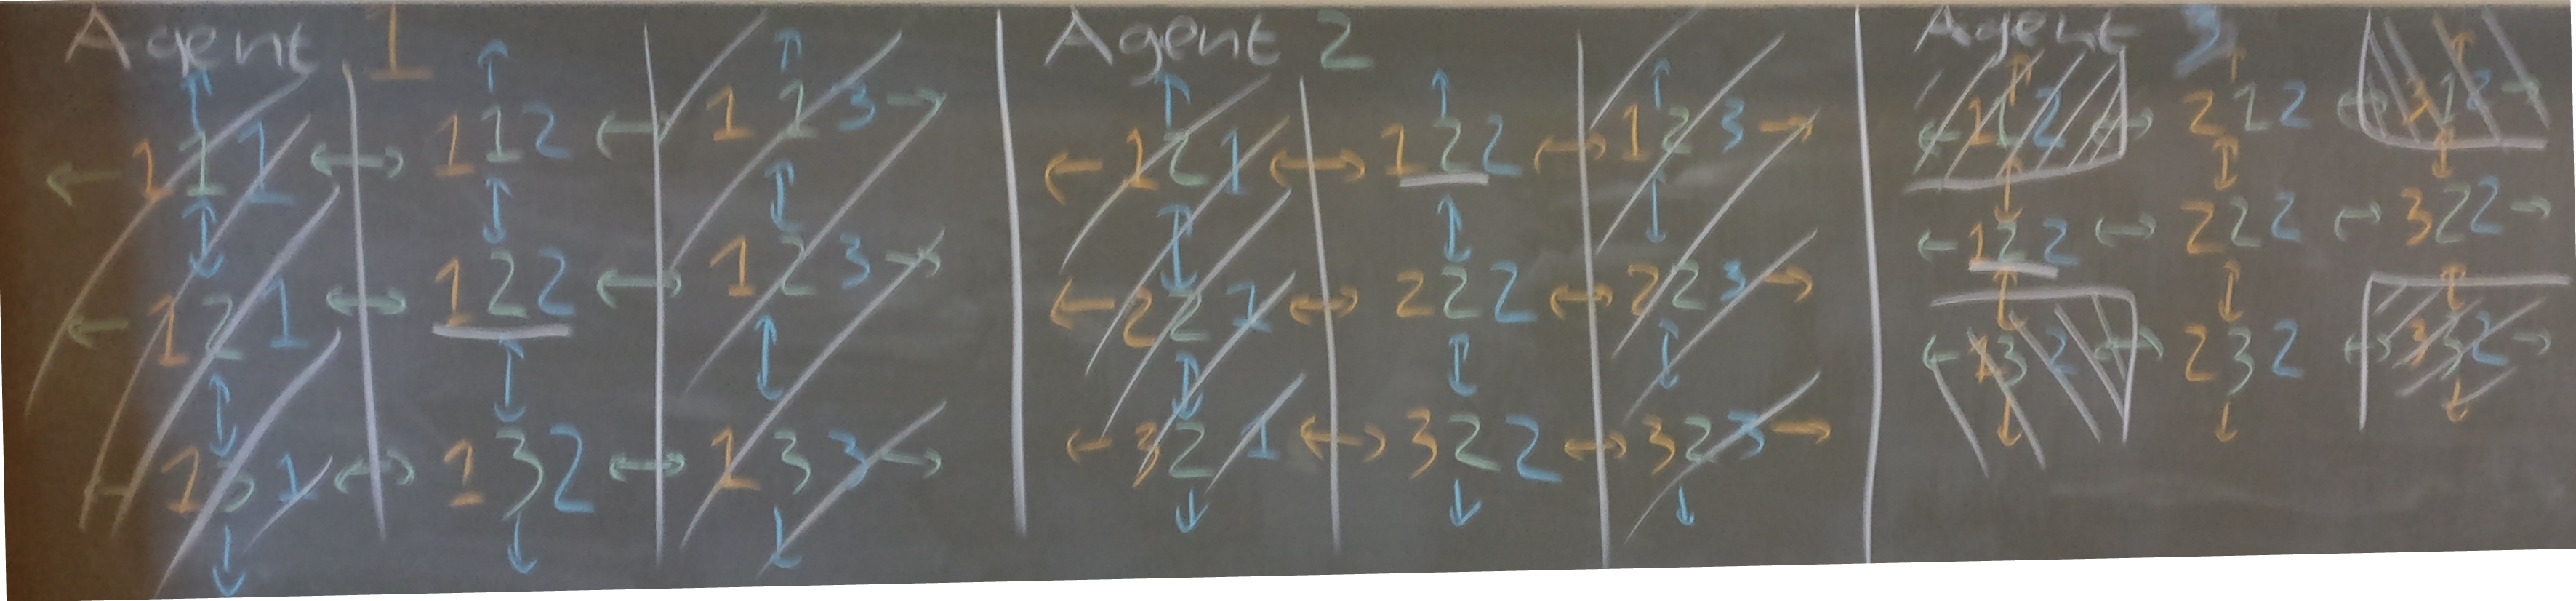 Agent 1
111 112 113
121 122 123
131 132 133
Agent 2
121 122 123
221 222 223
321 322 323
Agent 3
112 212 312
122 222 322
132 232 332